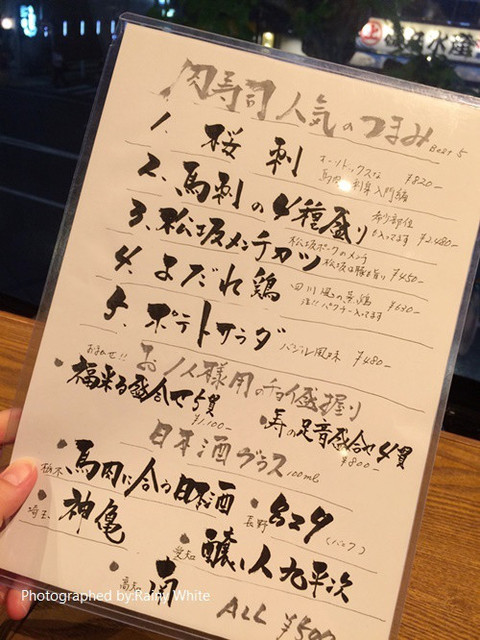 肉寿司 人気のつまみ BEST 5
1. 桜刺 オーソドックスな 馬肉の刺身入門編 ¥820-
2. 馬刺の4種盛り 希少部位も入ってます ¥2,480-
3. 松坂メンチカツ 松坂ポークのメンチ 松坂は豚も旨い ¥450-
4. よだれ鶏 四川風の蒸鶏 注!!パクチー入ってます ¥630-
5. ポテトサラダ バジル風味 ¥480-
おまかせ!! お1人様用のチョイ盛握り
・福来る盛合せ5貫 ¥1,100-
・寿の足音盛合せ4貫 ¥800-
日本酒グラス 100ml
・栃木 馬肉に合う日本酒
・長野
・埼玉 神亀
・愛知 醸し人九平次
・高知 南
ALL ¥500
水産
Photographed by:Rainy White